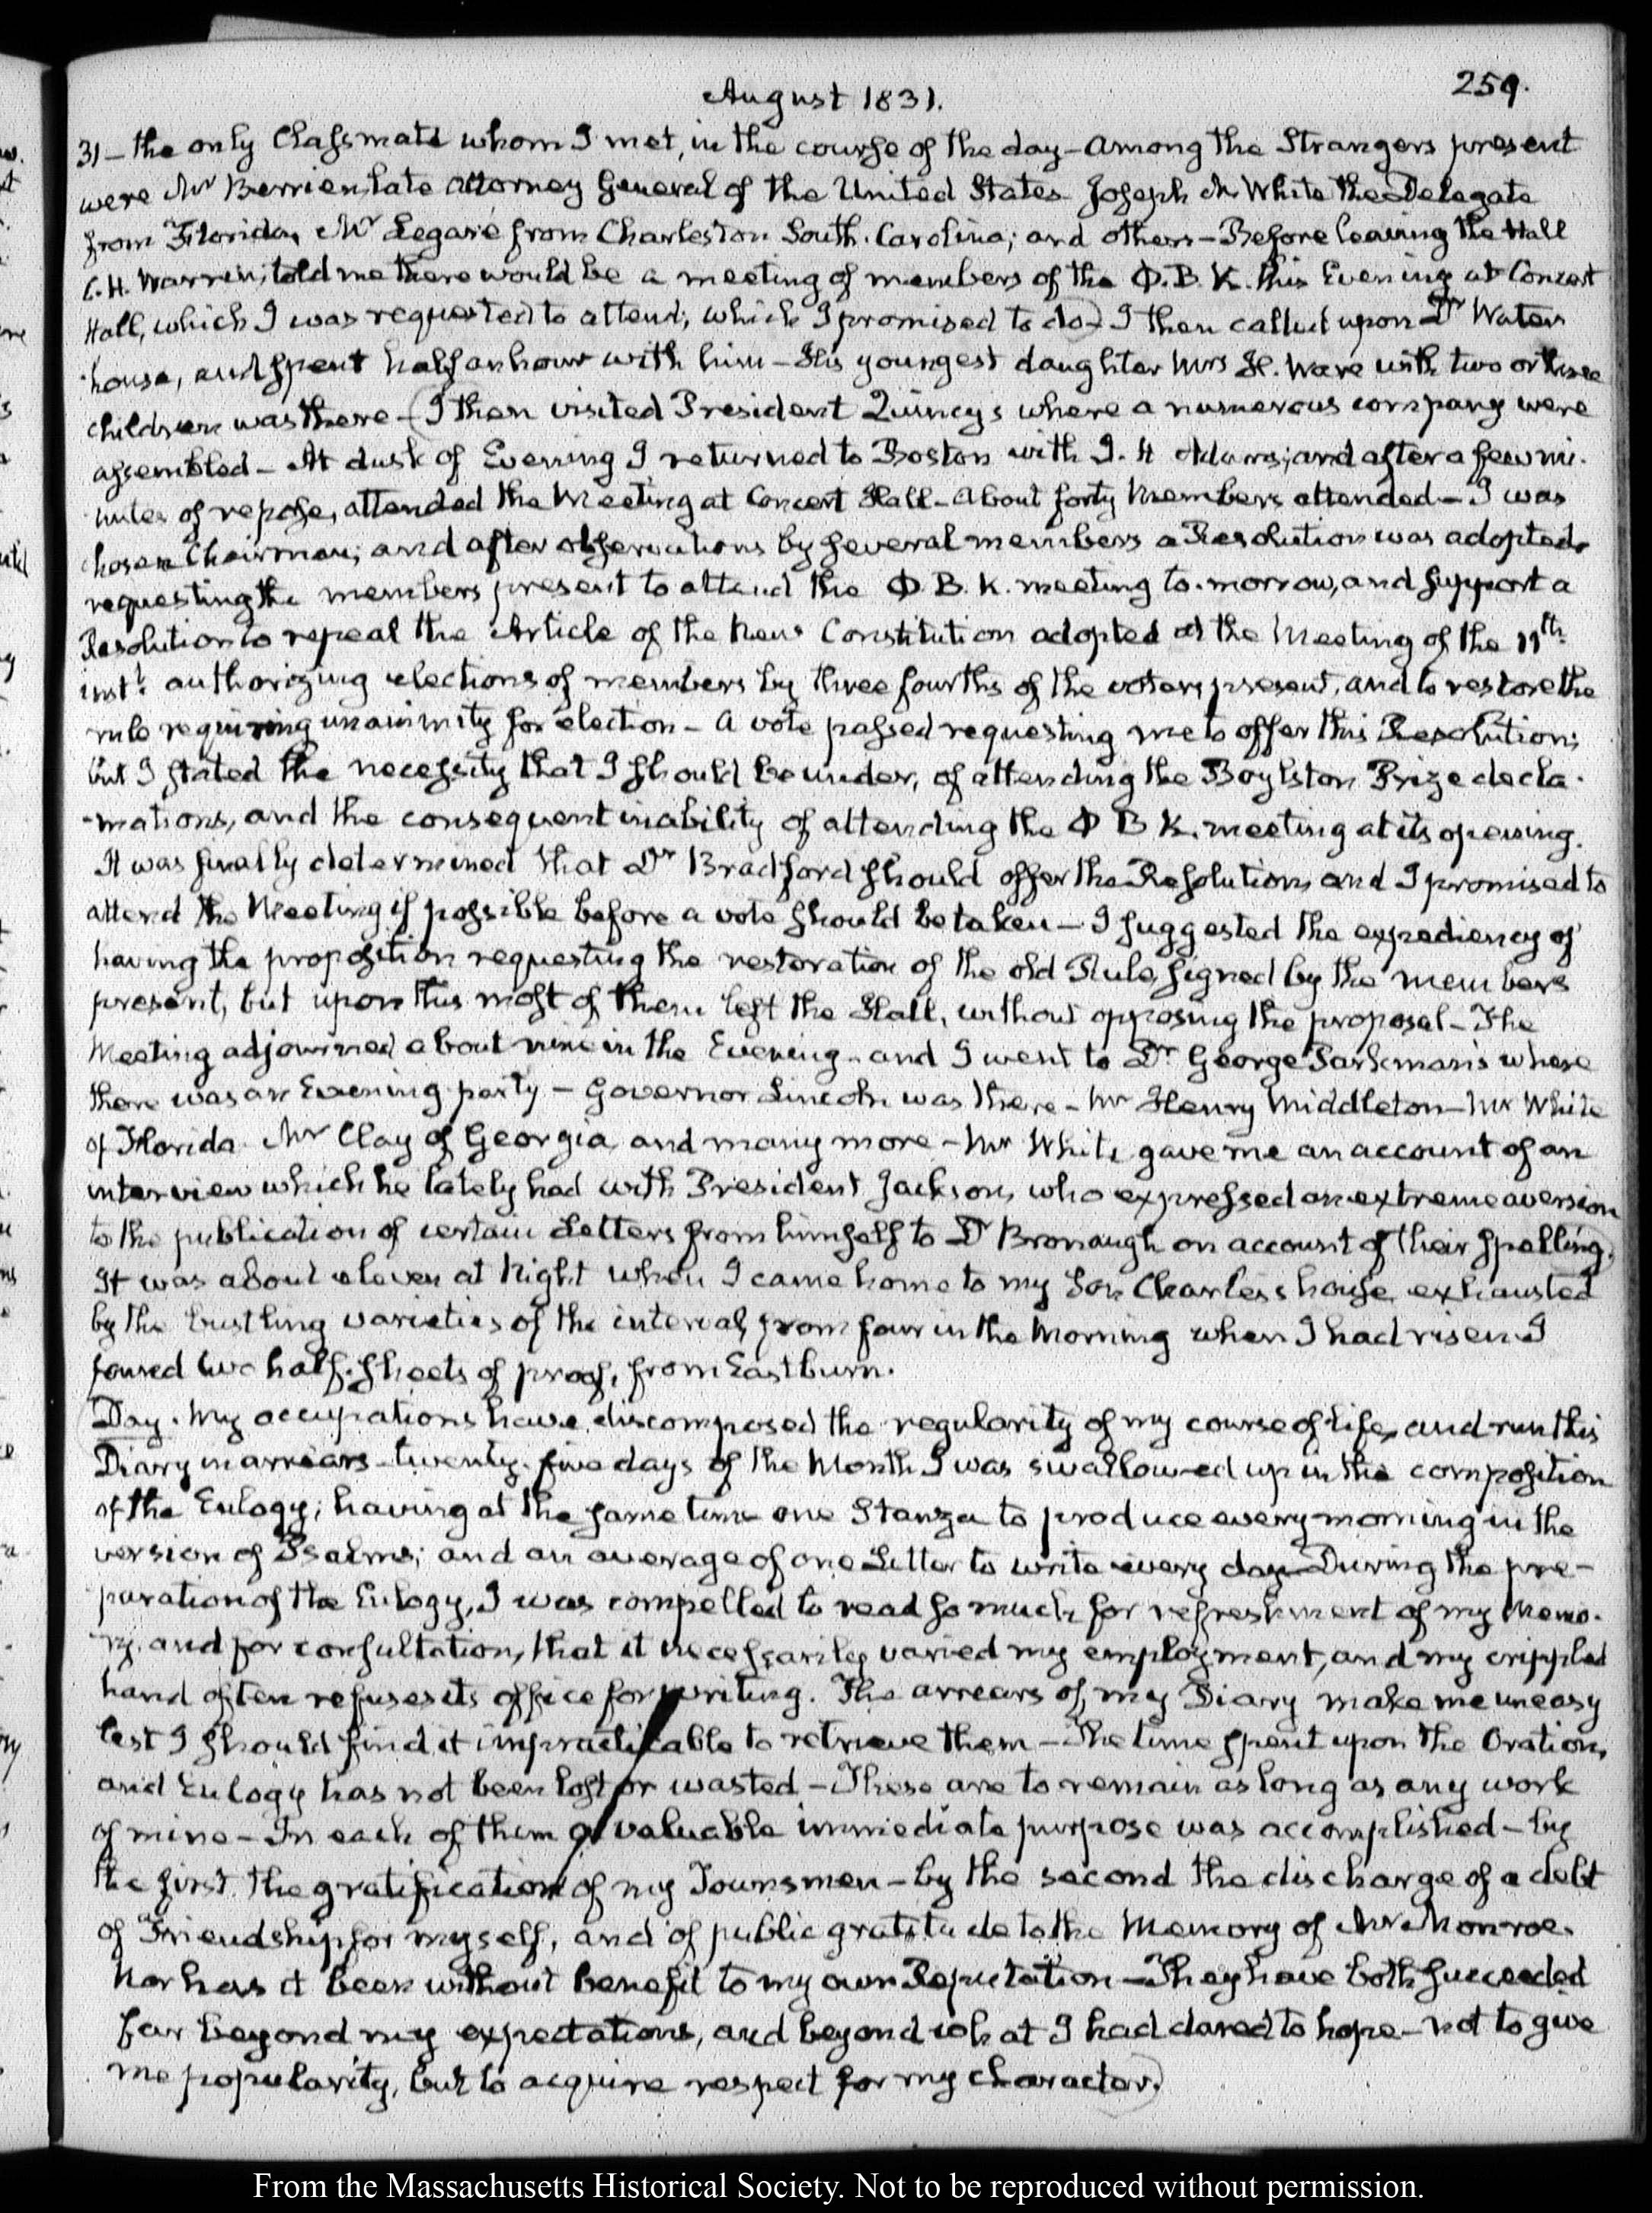 August 1831.
259.
31 – the only Classmate whom I met, in the course of the day – Among the Strangers present
were Mr Berrien, late Attorney General of the United States Joseph M. White the Delegate
from Florida, Mr Legaré from Charleston South. Carolina; and others – Before leaving the Hall
C. H. Warren, told me there would be a meeting of members of the Φ. B. K. this Evening at Concert
Hall, which I was requested to attend; which I promised to do – I then called upon Dr Water
house, and spent half an hour with him – His youngest daughter Mrs H. Ware with two or three
children was there – (I then visited President Quincy's where a numerous company were
assembled – At dusk of Evening I returned to Boston with I. H Adams; and after a few mi-
nutes of repose, attended the Meeting at Concert Hall – About forty Members attended – I was
chosen Chairman; and after observations by several members a Resolution was adopted,
requesting the members present to attend the Φ. B. K. meeting to-morrow, and support a
Resolution to repeal the Article of the New Constitution adopted at the Meeting of the 11th.
instt. authorizing elections of members by three fourths of the voters present, and to restore the
rule requiring unanimity for election – A vote passed requesting me to offer this Resolution;
but I stated the necessity that I should be under, of attending the Boylston Prize decla-
-mations, and the consequent inability of attending the Φ B K. meeting at its opening.
It was finally determined that Dr Bradford should offer the Resolution, and I promised to
attend the Meeting if possible before a vote should be taken – I suggested the expediency of
having the proposition requesting the restoration of the old Rule, signed by the members
present, but upon this most of them left the Hall, without opposing the proposal – The
Meeting adjourned about nine in the Evening – and I went to Dr George Parkman's where
there was an Evening party – Governor Lincoln was there – Mr Henry Middleton – Mr White
of Florida Mr Clay of Georgia, and many more – Mr White gave me an account of an
interview which he lately had with President Jackson, who expressed an extreme aversion
to the publication of certain Letters from himself to Dr Bronaugh on account of their spelling.
It was about eleven at Night when I came home to my Son Charles's house, exhausted
by the bustling varieties of the interval, from four in the Morning when I had risen. I
found two half-sheets of proof, from Eastburn.
Day. My occupations have discomposed the regularity of my course of life, and run this
Diary in arrears – twenty-five days of the Month I was swallowed up in the composition
of the Eulogy; having at the same time one Stanza to produce every morning in the
version of Psalms; and an average of one Letter to write every day – During the pre-
paration of the Eulogy, I was compelled to read so much for refreshment of my Memo-
ry, and for consultation, that it necessarily varied my employment, and my crippled
hand often refuses its office for writing. The arrears of my Diary make me uneasy
lest I should find it impracticable to retrieve them – The time spent upon the Oration,
and Eulogy has not been lost or wasted – These are to remain as long as any work
of mine – In each of them a valuable immediate purpose was accomplished – by
the first, the gratification of my Townsmen – by the second the discharge of a debt
of Friendship for myself, and of public gratitude to the Memory of Mr Monroe.
Nor has it been without benefit to my own Reputation – They have both succeeded
far beyond my expectations, and beyond what I had dared to hope – not to give
me popularity, but to acquire respect for my character.)
From the Massachusetts Historical Society. Not to be reproduced without permission.